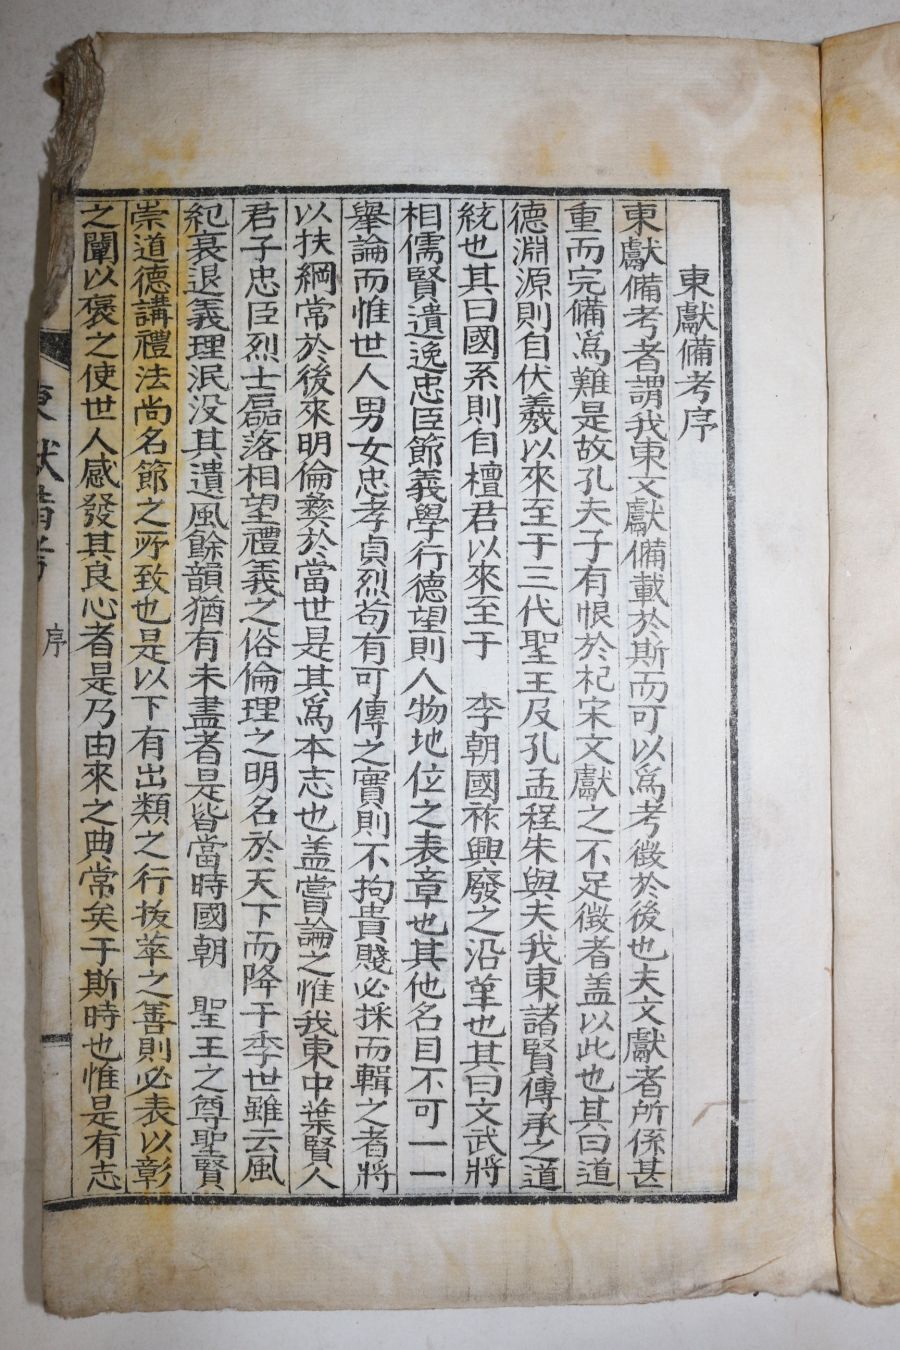 東獻備考序
東獻備考者謂我東文獻備載於斯而可以爲考徵於後也夫文獻者所係甚
重而完備爲難是故孔夫子有恨於杞宋文獻之不足徵者盖以此也其曰道
德淵源則自伏羲以來至于三代聖王及孔孟程朱與夫我東諸賢傳承之道
統也其曰國系則自檀君以來至于 李朝國祚興廢之沿革也其曰文武將
相儒賢遺逸忠臣節義學行德望則人物地位之表章也其他名目不可一一
舉論而惟世人男女忠孝貞烈苟有可傳之實則不拘貴賤必採而輯之者將
以扶綱常於後來明倫彜於當世是其爲本志也盖嘗論之惟我東中葉賢人
君子忠臣烈士磊落相望禮義之俗倫理之明名於天下而降于季世雖云風
紀衰退義理泯没其遺風餘韻猶有未盡者是皆當時國朝 聖王之尊聖賢
崇道德講禮法尚名節之所致也是以下有出類之行拔萃之善則必表以彰
之闡以褒之使世人感發其良心者是乃由來之典常矣于斯時也惟是有志
東獻備考
序